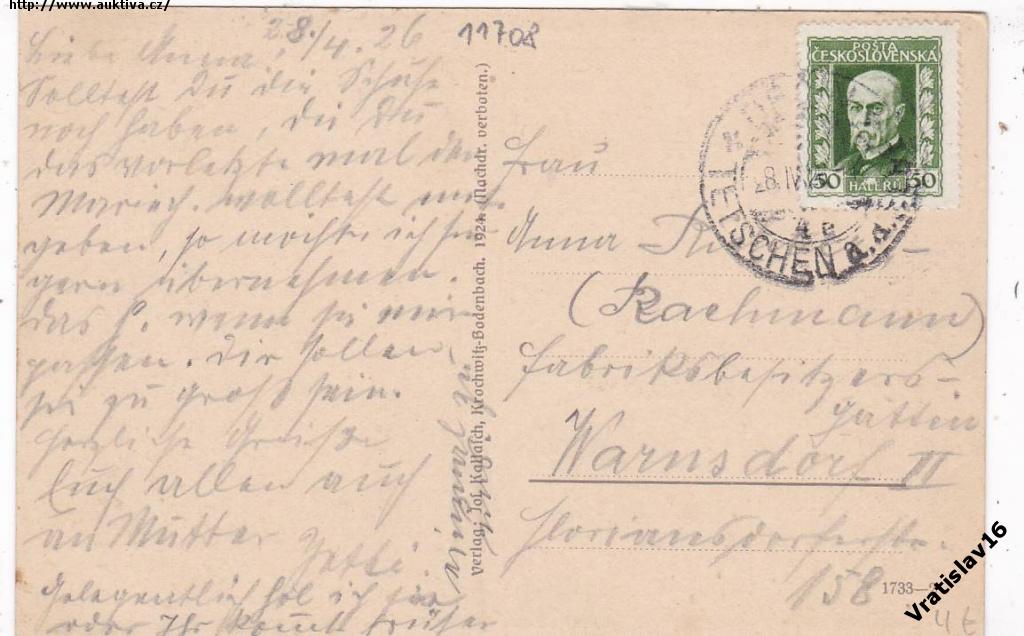 http://www.auktiva.cz/
28./4. 26
11708
Liebe Anna!
Solltest Du die Schuhe
noch haben, die Du
das vorletzte mal der
Mariech. wolltest
geben, so möchte ich sie
gern übernehmen.
das h. wenn sie mir
passen. Dir sollen
sie zu groß sein.
Herzliche Grüße
Euch allen auch
an Mutter
Gelegentlich hol ich sie
oder Ihr kommt früher
Verlag: Jos. Kallasch, Krochwitz-Bodenbach. 1924. (Nachdr. verboten.)
POSTA
ČESKOSLOVENSKÁ
50 HALÉŘŮ 50
TETSCHEN a. d.
28.IV
4a
Frau
Anna
(Rachmann)
Fabriksbesitzers-
gattin
Warnsdorf II
Floriansdorferstr.
158
1733-
Vratislav16
4 €